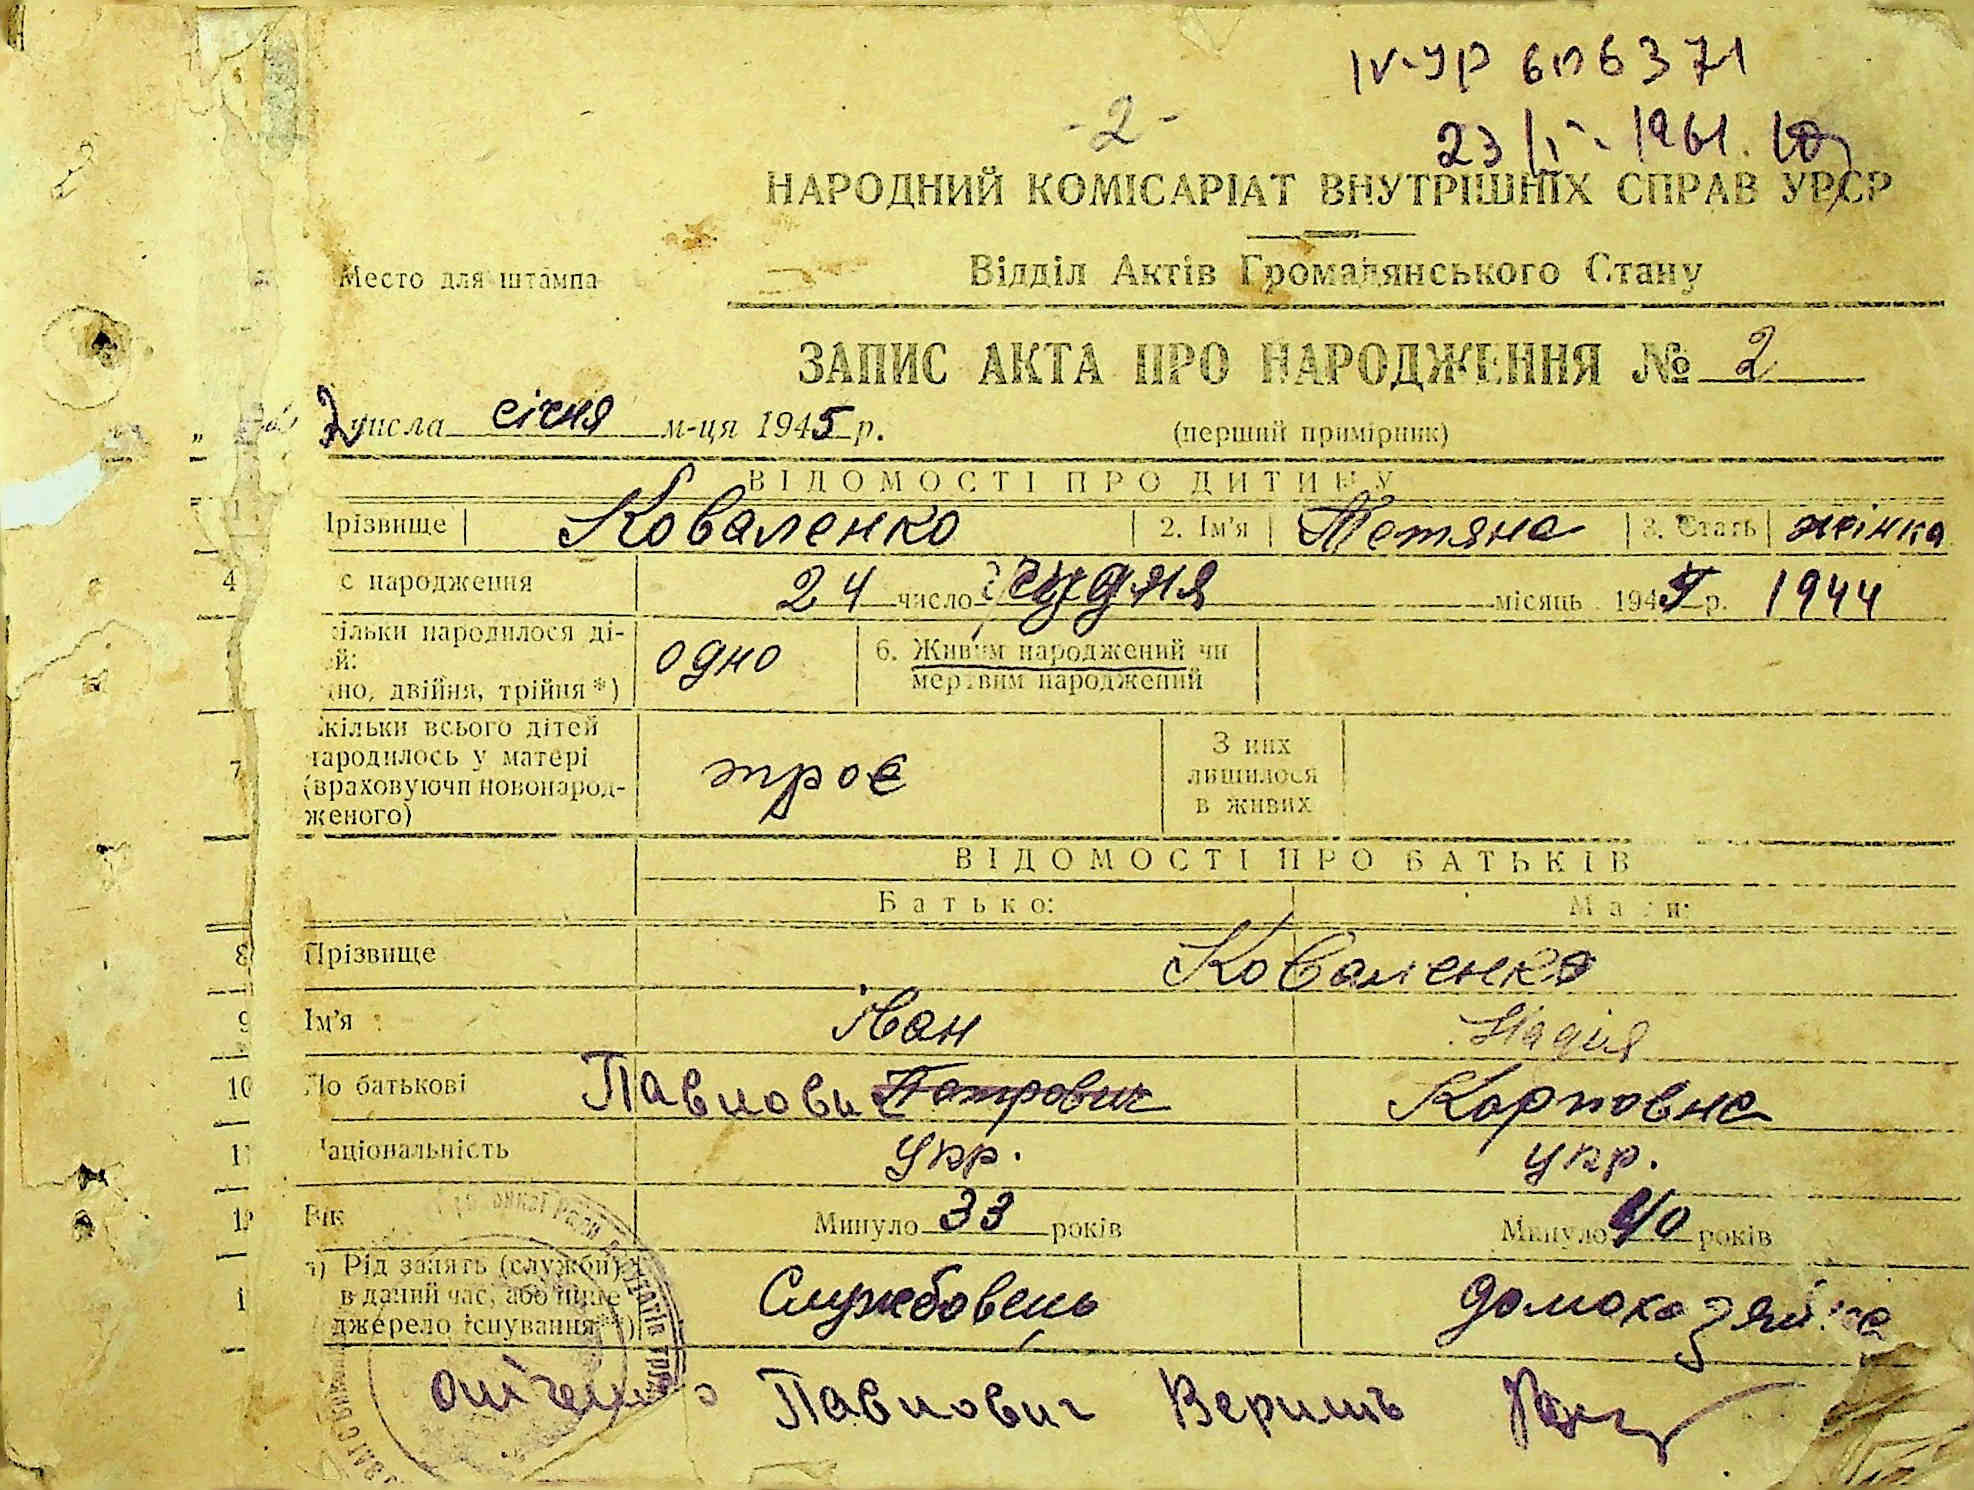 IV-УР 606371
- 2 -
23/I - 1961.
НАРОДНИЙ КОМІСАРІАТ ВНУТРІШНІХ СПРАВ УРСР
Место для штампа
Відділ Актів Громадянського Стану
ЗАПИС АКТА ПРО НАРОДЖЕННЯ № 2
„ 2 числа січня м-ця 1945 р. (перший примірник)
ВІДОМОСТІ ПРО ДИТИНУ
1 прізвище Коваленко 2. Ім'я Тетяна 3. Стать жінка
4 с народження 24 число грудня місяць 194 р. 1944
ільки народилося ді-
й:
но, двійня, трійня*) одно 6. Живим народжений чи
мертвим народжений
7 кільки всього дітей
народилось у матері
(враховуючи новонарод-
женого) троє З них
лишилося
в живих
ВІДОМОСТІ ПРО БАТЬКІВ
Батько: Мати:
8 Прізвище Коваленко
9 Ім'я Іван Надія
10 По батькові Павлович Петрович Карповна
11 Національність укр. укр.
12 Вік Минуло 33 років Минуло 40 років
1 а) Рід занять (служби)
в даний час, або інше
джерело існування**) Службовець домохазяйка
Павлович Веримь